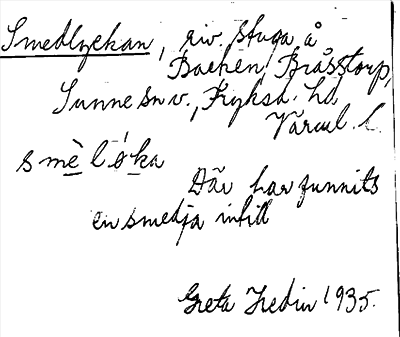 Smedlyckan, riv. stuga å
Backen, Bråsstorp,
Sunne sn v., Fryksd. hd
Värml. l.
smè l ó ka
Där har funnits
en smedja intill
Greta Hedin 1935.